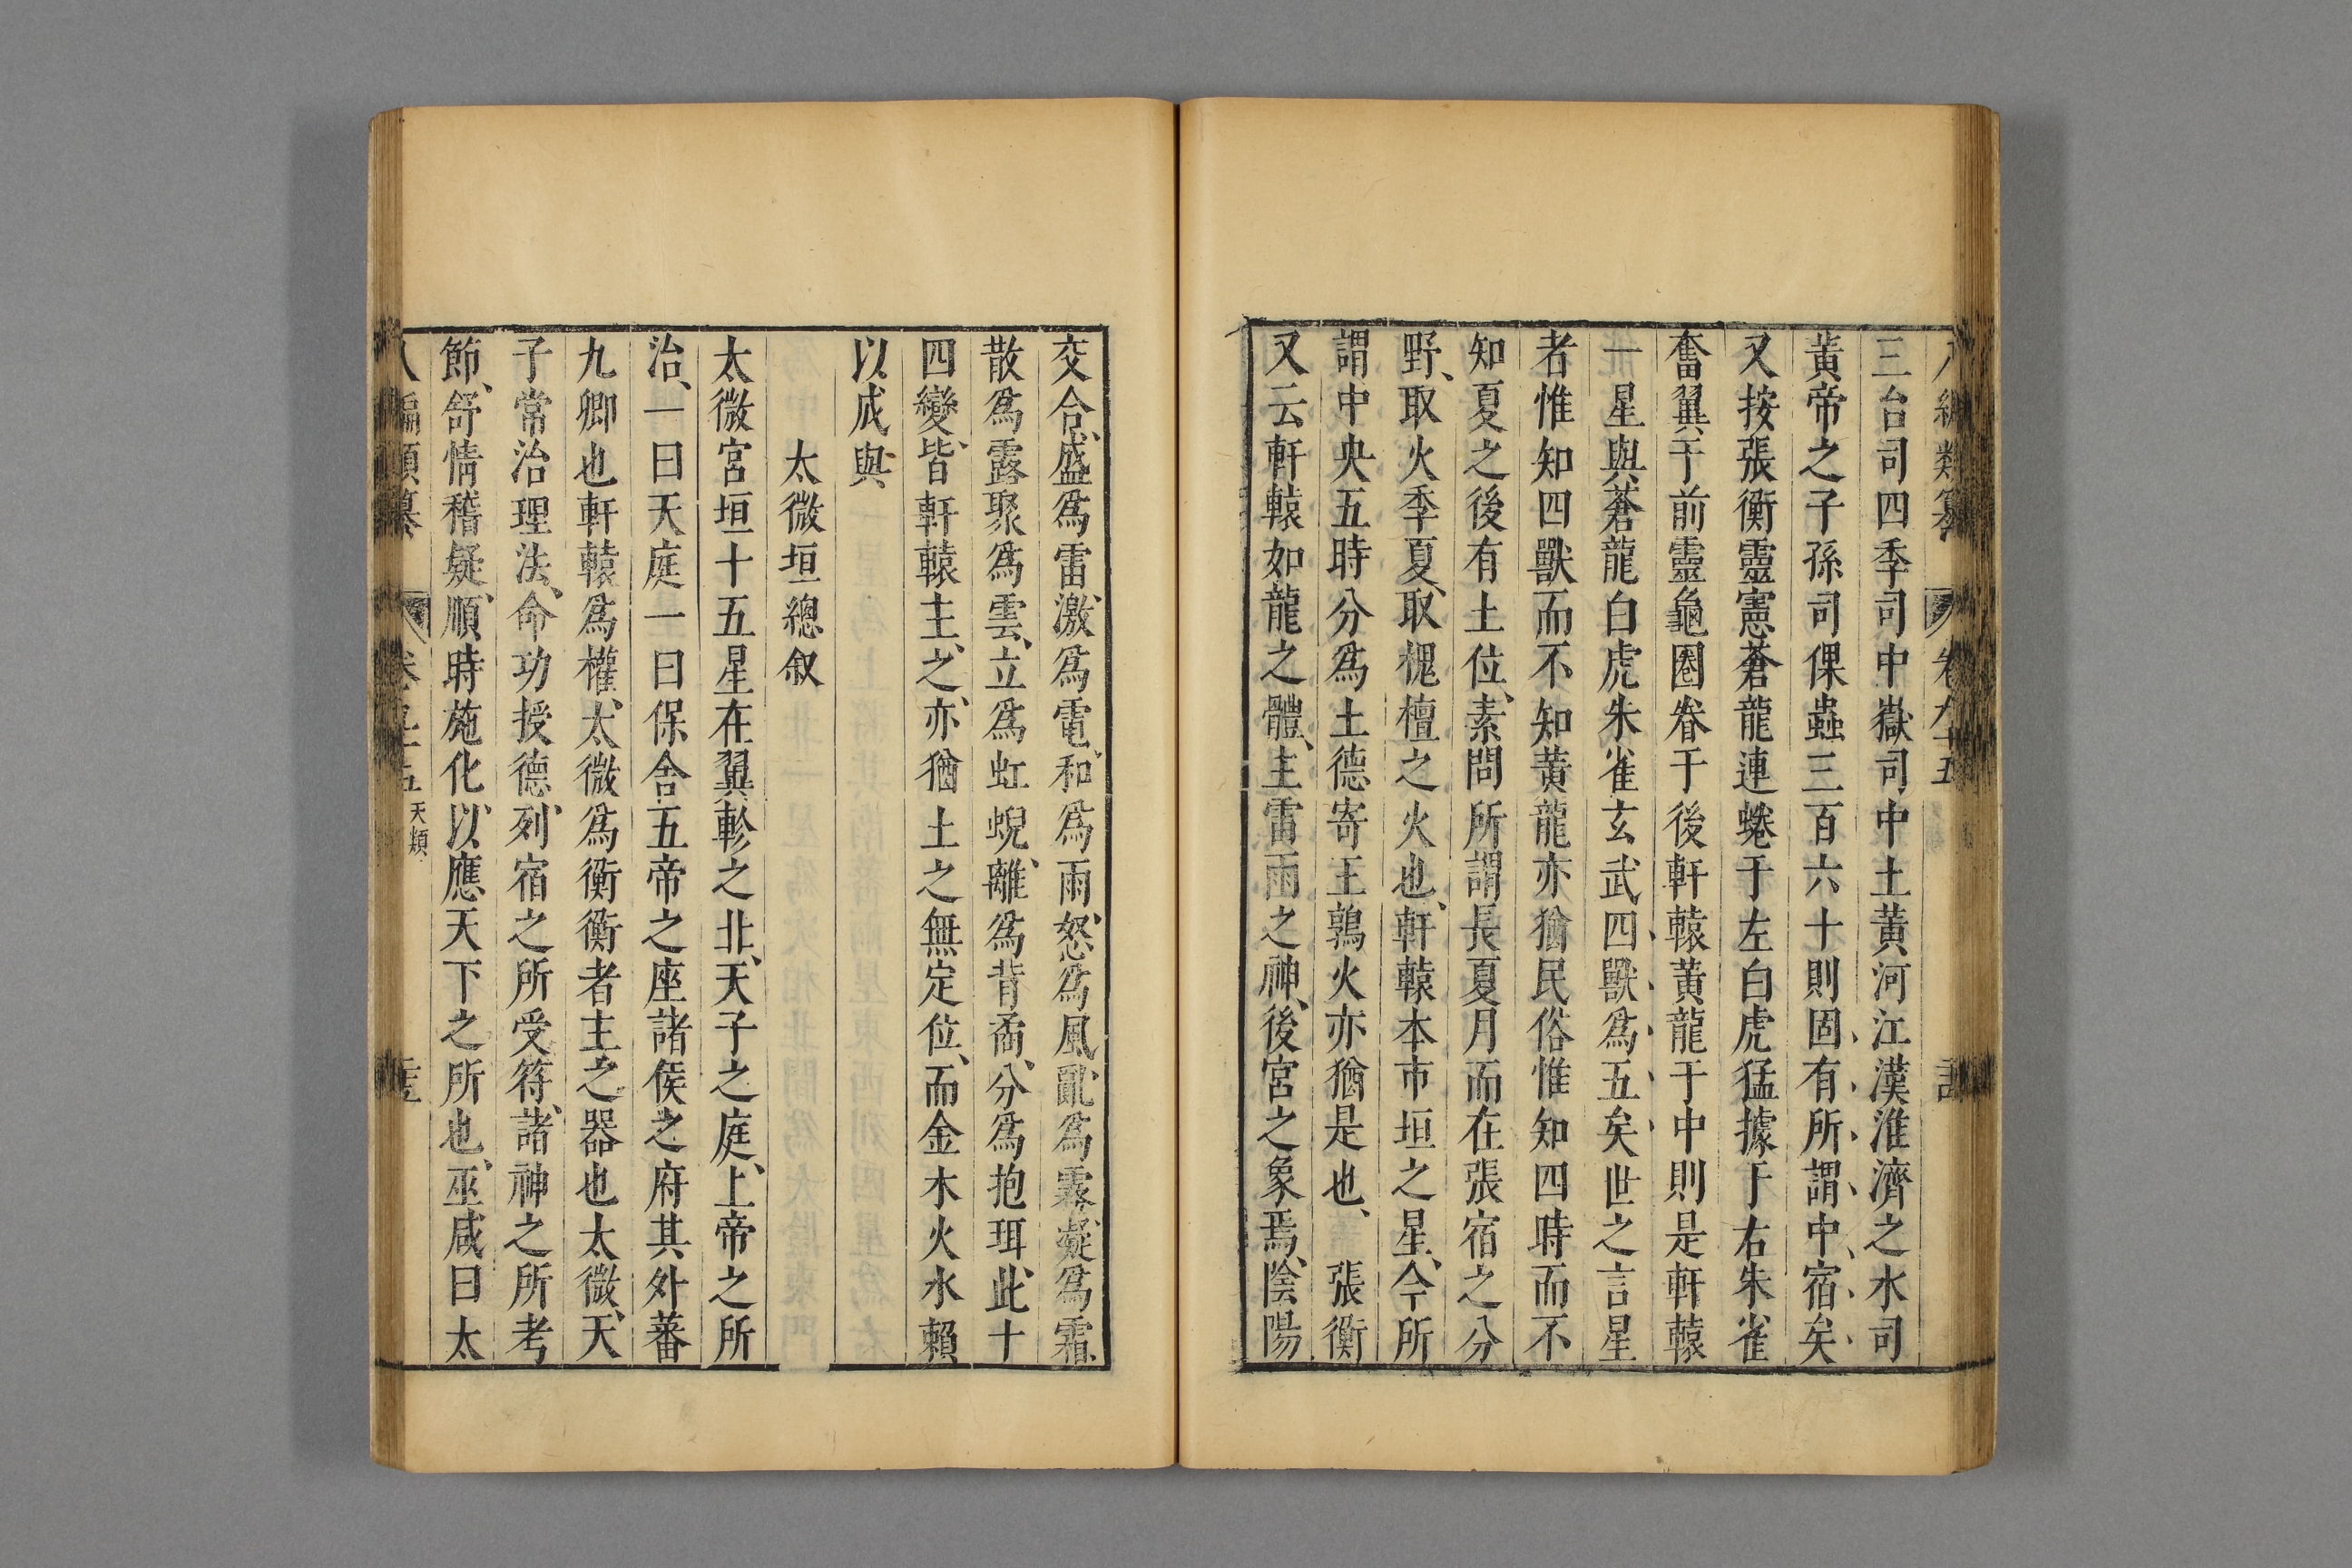 三台司四季司中嶽司中土黃河江漢淮濟之水司
黃帝之子孫司倮蟲三百六十則固有所謂中宿矣
又按張衡靈憲蒼龍連蜷于左白虎猛據于右朱雀
奮翼于前靈龜圈眷于後軒轅黃龍于中則是軒轅
一星與蒼龍白虎朱雀玄武四獸爲五矣世之言星
者惟知四獸而不知黃龍亦猶民俗惟知四時而不
知夏之後有土位、素問所謂長夏月而在張宿之分
野、取火季夏、取槐檀之火也、軒轅本市垣之星、今所
謂中央五時分爲土德寄王鶉火亦猶是也、張衡
又云軒轅如龍之體、主雷雨之神、後宮之象焉、陰陽
交合、盛爲雷、激爲電、和爲雨、怒爲風、亂爲霧、凝爲霜、
散爲露、聚爲雲、立爲虹蜺、離爲背矞、分爲抱珥、此十
四變、皆軒轅主之、亦猶土之無定位、而金木火水賴
以成與
太微垣總叙
太微宮垣十五星在翼軫之北、天子之庭、上帝之所
治、一曰天庭一曰保舍五帝之座諸侯之府其外蕃
九卿也軒轅爲權、太微爲衡衡者主之器也太微、天
子常治理法、命功授德、列宿之所受符、諸神之所考
節、舒情稽疑、順時施化、以應天下之所也、巫咸曰太
八編類纂 卷 五 天類